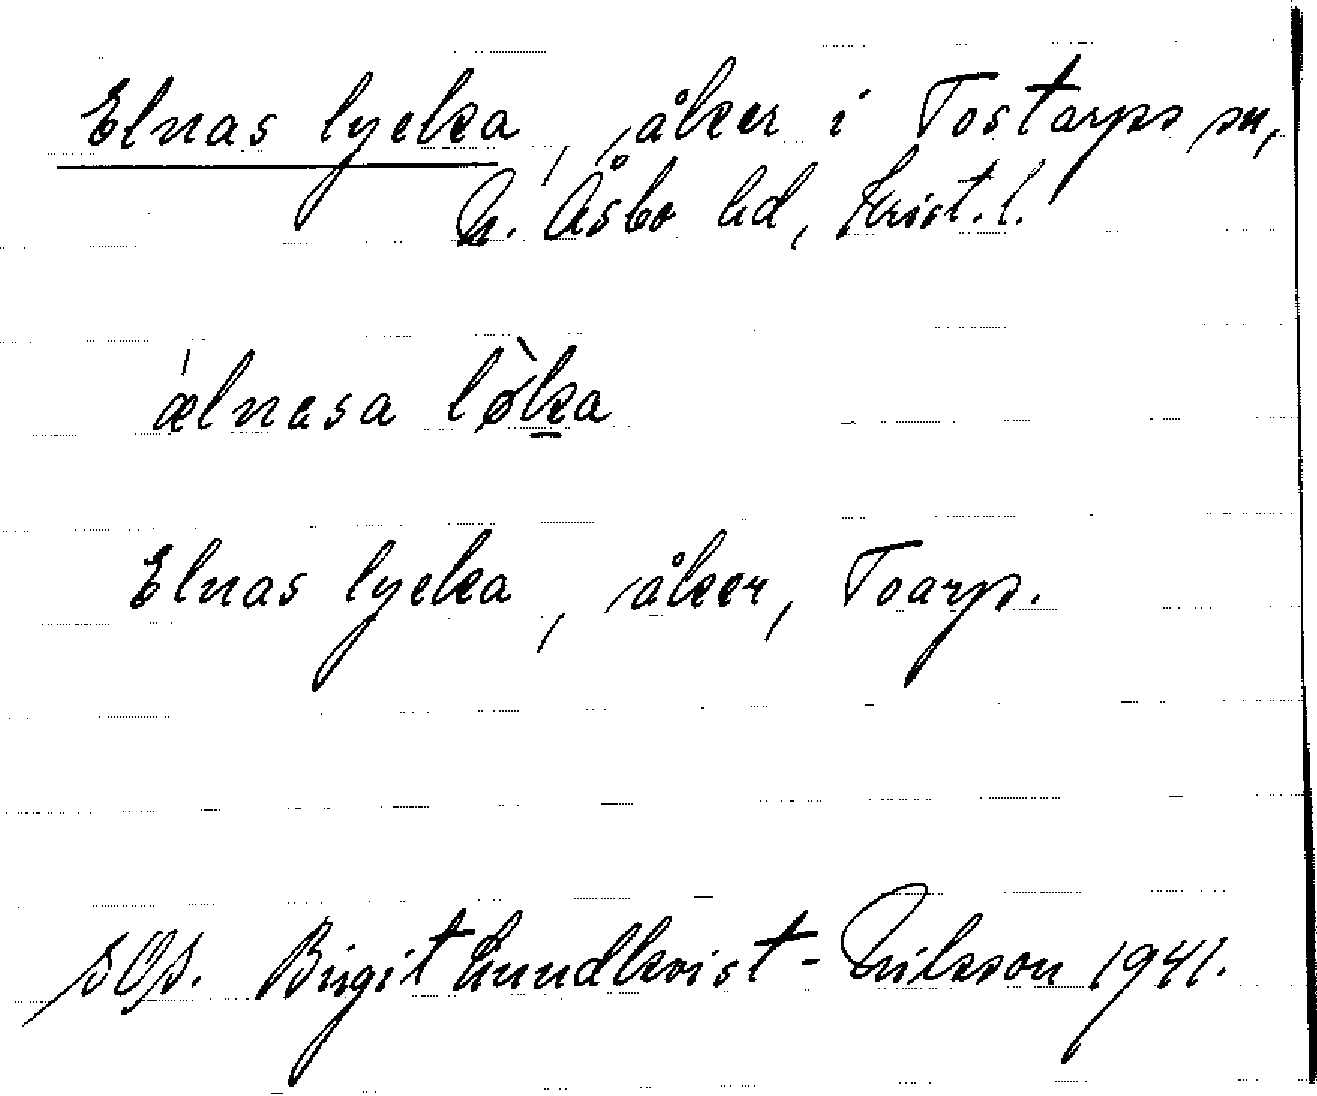 Elnas lycka, åker i Tostarps sn,
N. Åsbo hd, Krist. l.
ǽlnasa lø̀ka
Elnas lycka, åker, Toarp.
Birgit Lundkvist-Nilsson 1941.